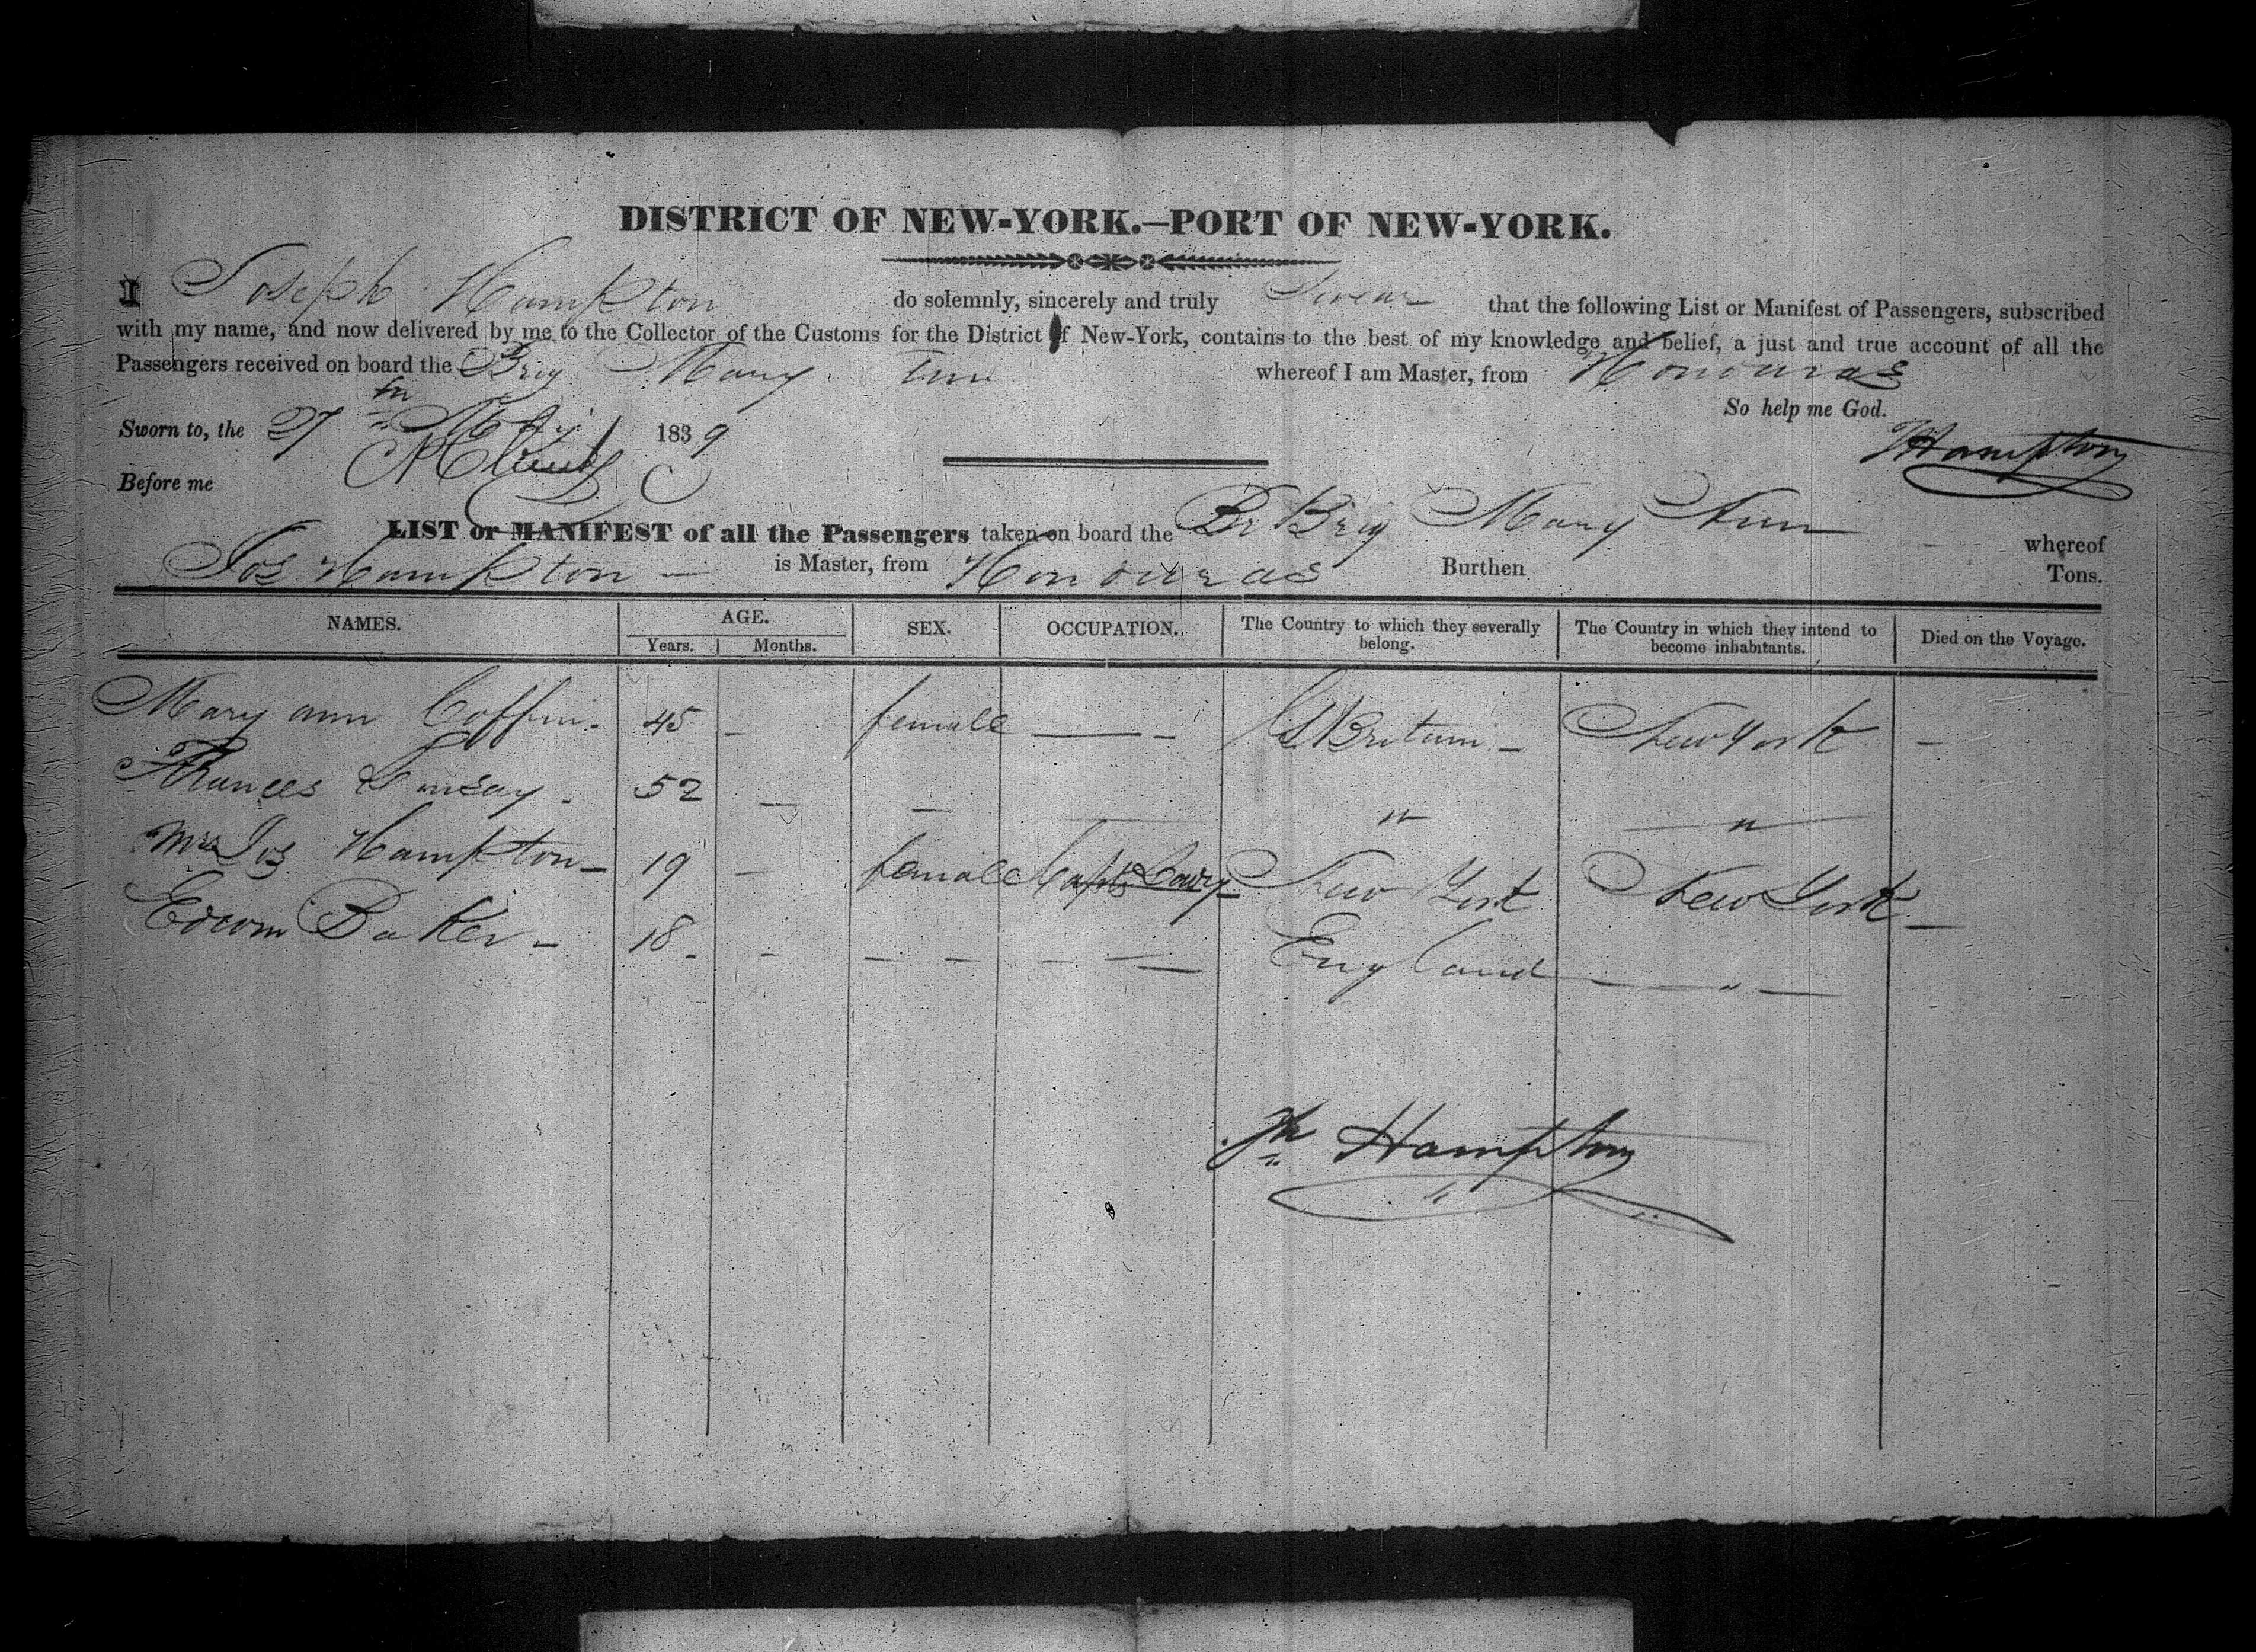 DISTRICT OF NEW-YORK.—PORT OF NEW-YORK.
I Joseph Hampton do solemnly, sincerely and truly Swear that the following List or Manifest of Passengers, subscribed
with my name, and now delivered by me to the Collector of the Customs for the District of New-York, contains to the best of my knowledge and belief, a just and true account of all the
Passengers received on board the Brig Mary Ann whereof I am Master, from Honduras
So help me God.
Sworn to, the 27th May 1839
Hampton
Before me
LIST or MANIFEST of all the Passengers taken on board the Br Brig Mary Ann whereof
Jos Hampton — is Master, from Honduras Burthen Tons.
NAMES. AGE. SEX. OCCUPATION. The Country to which they severally belong. The Country in which they intend to become inhabitants. Died on the Voyage.
Years. Months.
Mary ann Coffin. 45 — female — — G Britain — New York —
Frances 52 — — — " — " —
Mrs Jos Hampton — 19 — female Capts Lady — New York New York —
Edwin Baker — 18 — — — — — — England — " —
Jh Hampton